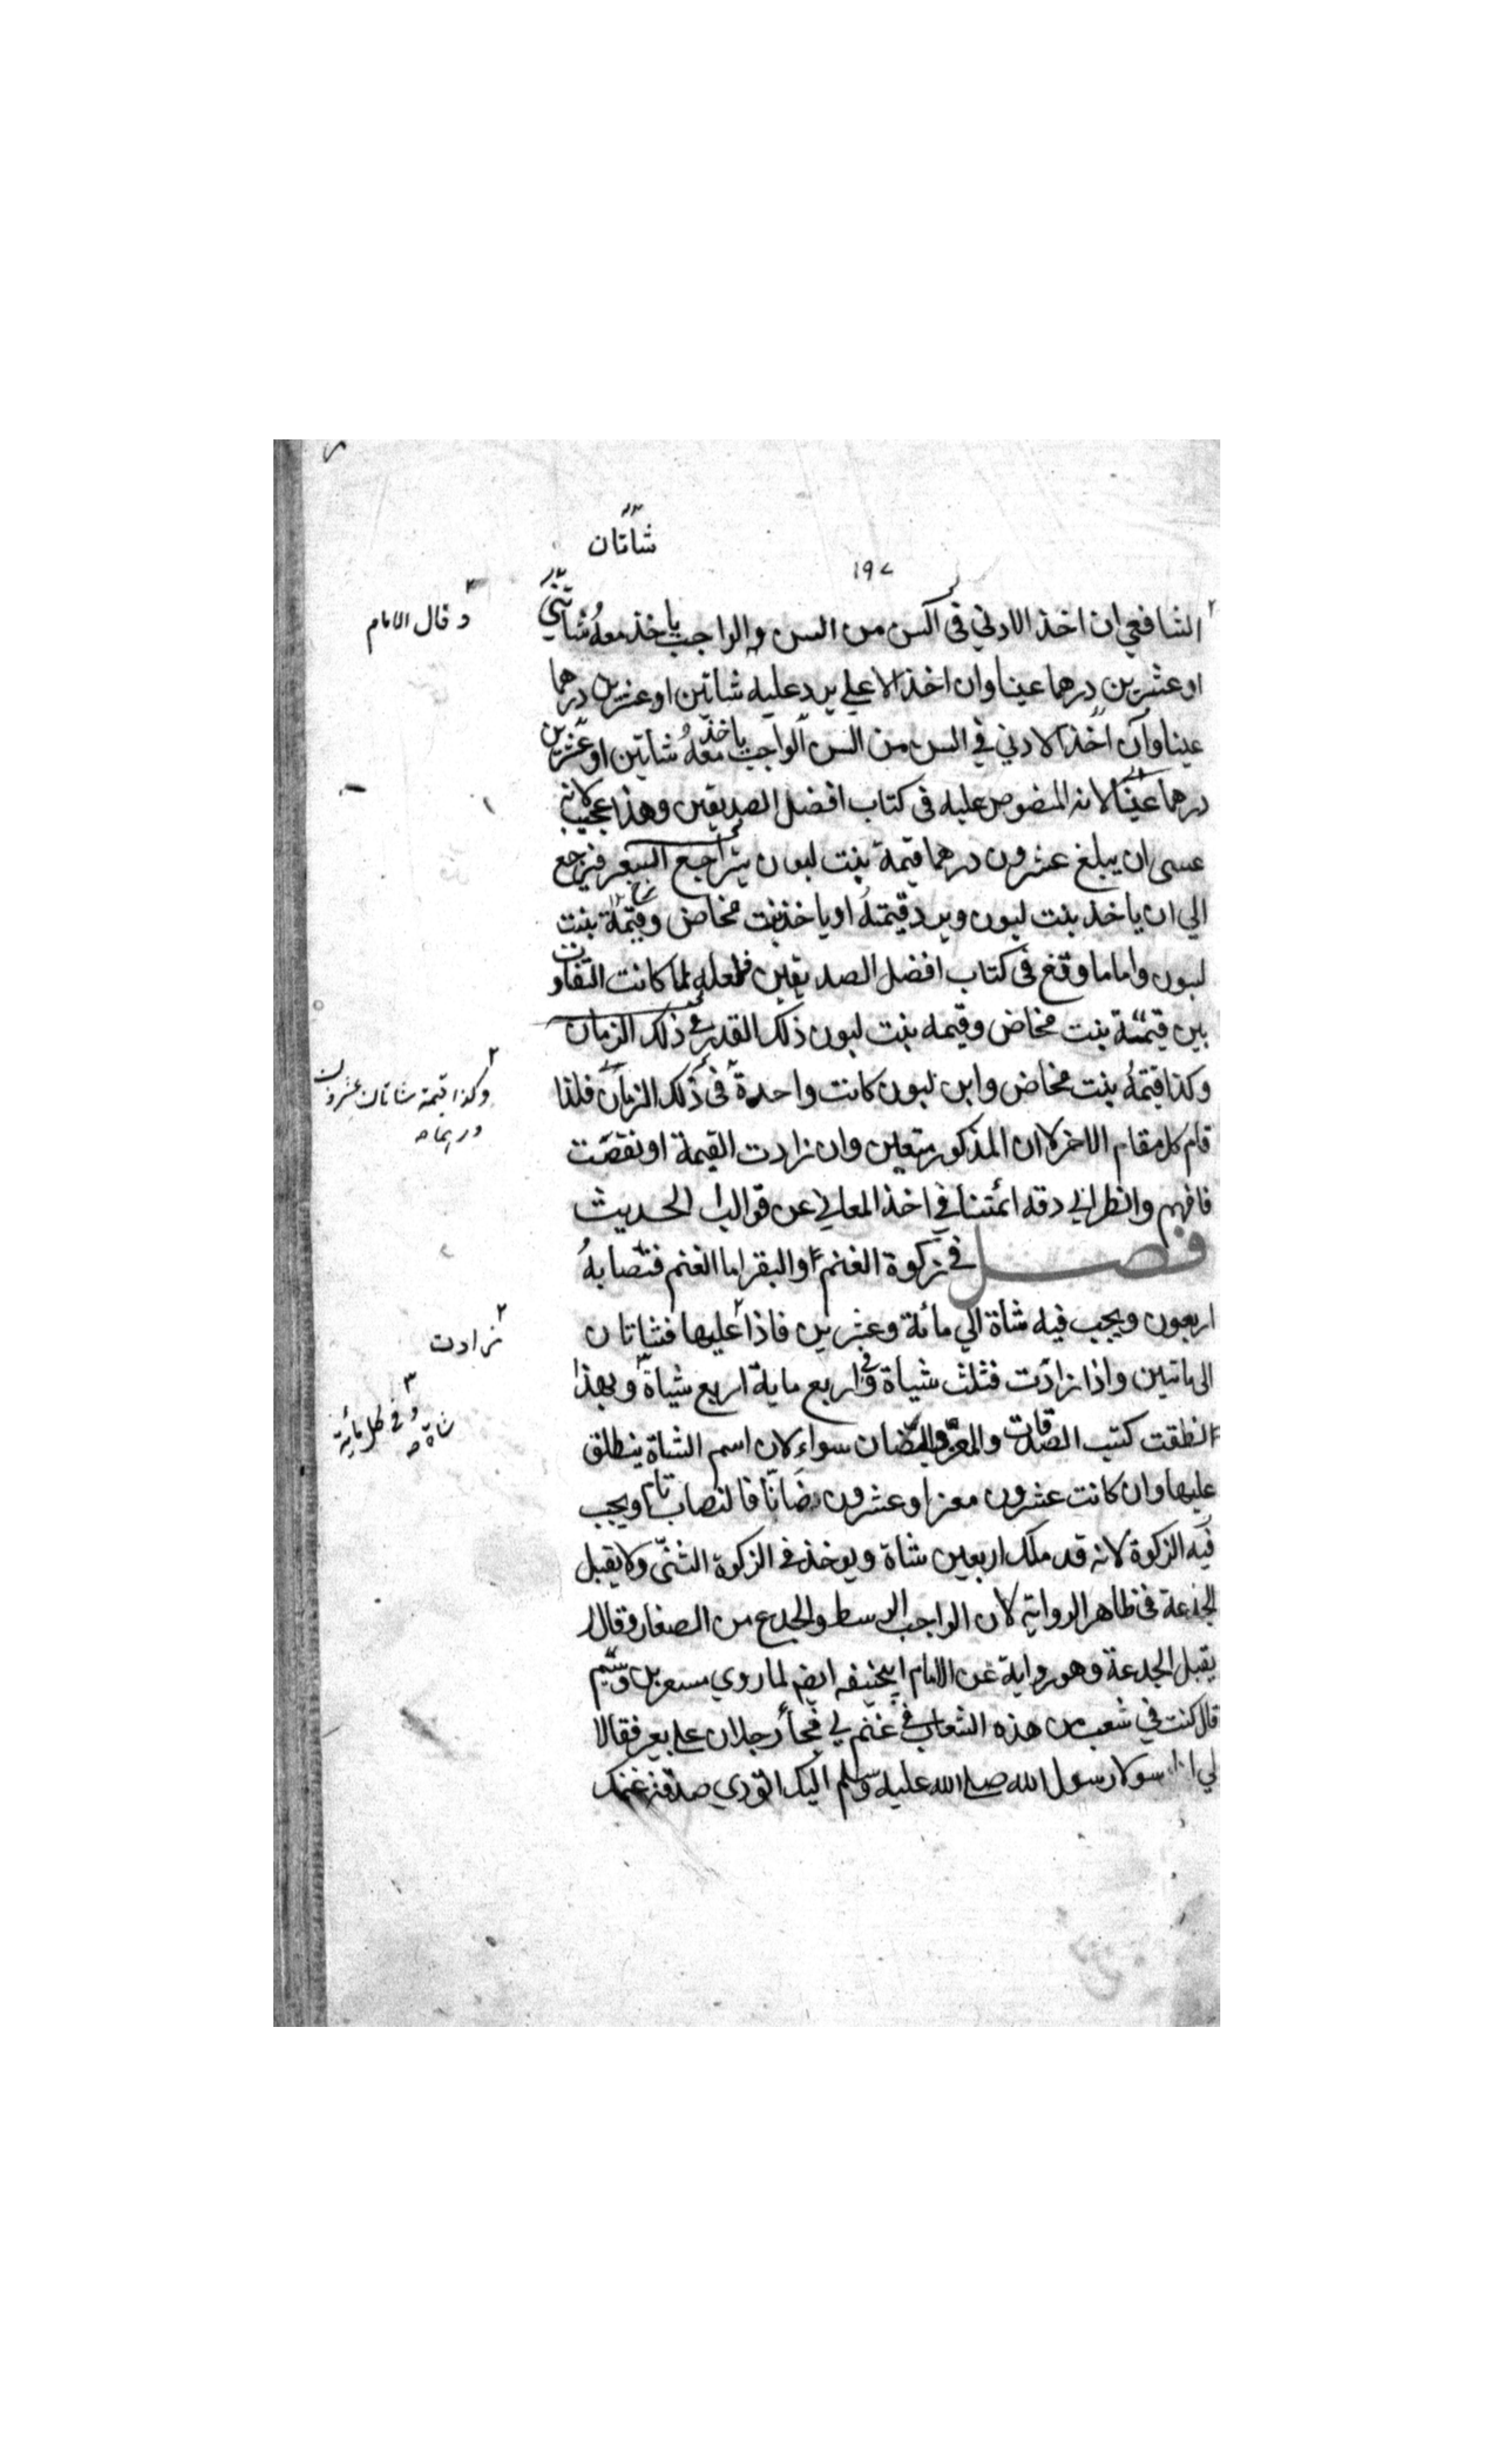 شاتان
١٩٧
وقال الامام
الشافعي ان اخذ الادني في السن من السن الواجب ياخذ معه شاتين
او عشرين درهما عينا وان اخذ الاعلي يرد عليه شاتين او عشرين درهما
عينا وان اخذ الادني في السن من السن الواجب ياخذ معه شاتين او عشرين
درهما عينا لانه المنصوص عليه في كتاب افضل الصديقين وهذا عجيب لانه
عسى ان يبلغ عشرون درهما قيمة بنت لبون يتراجع السعر فيرجع
الي ان ياخذ بنت لبون ويرد قيمته او ياخذ بنت مخاض وقيمة بنت
لبون واما ما وقع في كتاب افضل الصديقين فلعله لما كانت التفاوت
بين قيمة بنت مخاض وقيمه بنت لبون ذلك القدر في ذلك الزمان
وكذا قيمة بنت مخاض وابن لبون كانت واحدة في ذلك الزمان فلذا
وكذا قيمة شاتان عشرون
درهما صح
قام كل مقام الاخر لا ان المذكور متعين وان زادت القيمة او نقصت
فافهم وانظر الي دقه ائمتنا في اخذ المعاني عن قوالب الحديث
فصل في زكوة الغنم والبقر اما الغنم فنصابهُ
اربعون ويجب فيه شاة الي مائة وعشرين فاذا عليها فشاتان
زادت
الى ماتين واذا زادت فثلث شياة وفي اربع ماية اربع شياة وبهذا
وفي كل مأية
شاة صح
انطقت كتب الصدقات والمعز والضان سواء لان اسم الشاة ينطلق
عليها وان كانت عشرون معزا وعشرون ضانا فالنصاب تام ويجب
فيه الزكوة لانه قد ملك اربعين شاة ويوخذ في الزكوة الثني ولا يقبل
الجذعة في ظاهر الرواية لان الواجب الوسط والجدع من الصغار وقالا
يقبل الجدعة وهو رواية عن الامام ابيحنيفه ايضم لما روي مسعر بن وسيم
قال كنت في شعب من هذه الشعاب في غنم لي فجأ رجلان علي بعير فقالا
لي انا رسولا رسول الله صلي الله عليه وسلم اليك لتودي صدقة غنمك